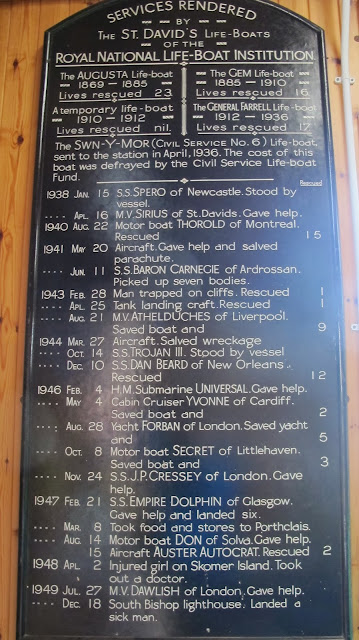 SERVICES RENDERED
BY
THE ST. DAVID'S LIFE-BOATS
OF THE
ROYAL NATIONAL LIFE-BOAT INSTITUTION.
The AUGUSTA Life-boat
1869 – 1885
Lives rescued 23
The GEM Life-boat
1885 – 1910
Lives rescued 16
A temporary life-boat
1910 – 1912
Lives rescued nil.
The GENERAL FARRELL Life-boat
1912 – 1936
Lives rescued 17
The SWN-Y-MOR (CIVIL SERVICE No. 6) Life-boat,
sent to the station in April, 1936. The cost of this
boat was defrayed by the Civil Service Life-boat
Fund.
Rescued
1938 JAN. 15 S.S. SPERO of Newcastle. Stood by
vessel.
.... APL. 16 M.V. SIRIUS of St. Davids. Gave help.
1940 AUG. 22 Motor boat THOROLD of Montreal.
Rescued 15
1941 MAY 20 Aircraft. Gave help and salved
parachute.
.... JUN. 11 S.S. BARON CARNEGIE of Ardrossan.
Picked up seven bodies.
1943 FEB. 28 Man trapped on cliffs. Rescued 1
.... APL. 25 Tank landing craft. Rescued 1
.... AUG. 21 M.V. ATHELDUCHES of Liverpool.
Saved boat and 9
1944 MAR. 27 Aircraft. Salved wreckage
.... OCT. 14 S.S. TROJAN III. Stood by vessel
.... DEC. 10 S.S. DAN BEARD of New Orleans.
Rescued 12
1946 FEB. 4 H.M. Submarine UNIVERSAL. Gave help.
.... MAY 4 Cabin Cruiser YVONNE of Cardiff.
Saved boat and 2
.... AUG. 28 Yacht FORBAN of London. Saved yacht
and 5
.... OCT. 8 Motor boat SECRET of Littlehaven.
Saved boat and 3
.... NOV. 24 S.S. J.P. CRESSEY of London. Gave
help.
1947 FEB. 21 S.S. EMPIRE DOLPHIN of Glasgow.
Gave help and landed six.
.... MAR. 8 Took food and stores to Porthclais.
.... AUG. 14 Motor boat DON of Solva. Gave help.
15 Aircraft AUSTER AUTOCRAT. Rescued 2
1948 APL. 2 Injured girl on Skomer Island. Took
out a doctor.
1949 JUL. 27 M.V. DAWLISH of London. Gave help.
.... DEC. 18 South Bishop lighthouse. Landed a
sick man.